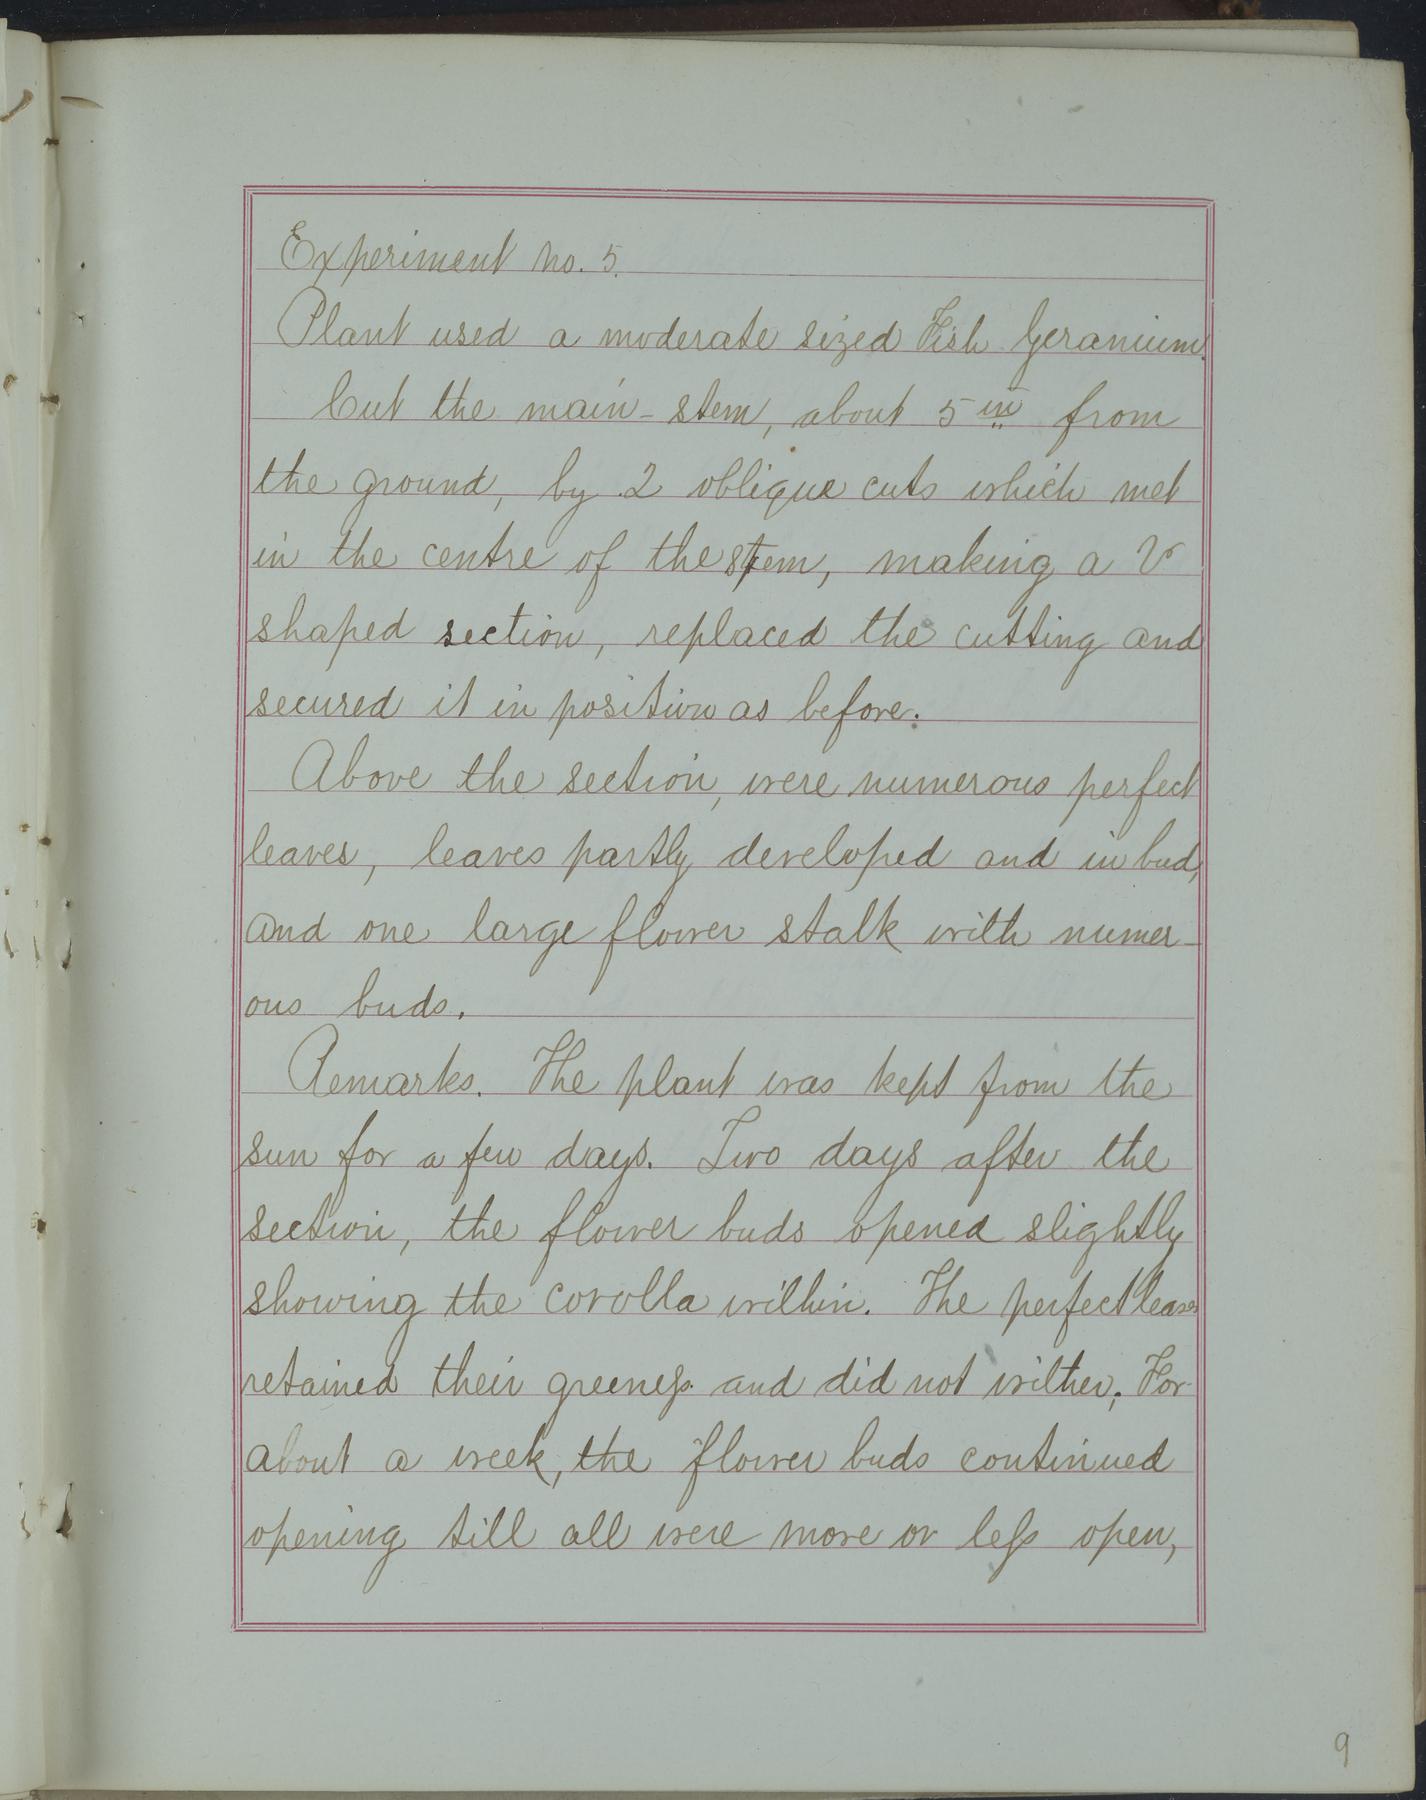 Experiment no. 5.
Plant used a moderate sized Fish Geranium.
Cut the main-stem, about 5 in from
the ground, by 2 oblique cuts which met
in the centre of the stem, making a V
shaped section, replaced the cutting and
secured it in position as before.
Above the section, were numerous perfect
leaves, leaves partly developed and in bud,
and one large flower stalk with numer-
ous buds.
Remarks. The plant was kept from the
sun for a few days. Two days after the
section, the flower buds opened slightly
showing the corolla within. The perfect leaves
retained their greeness and did not wither. For
about a week, the flower buds continued
opening till all were more or less open,
9